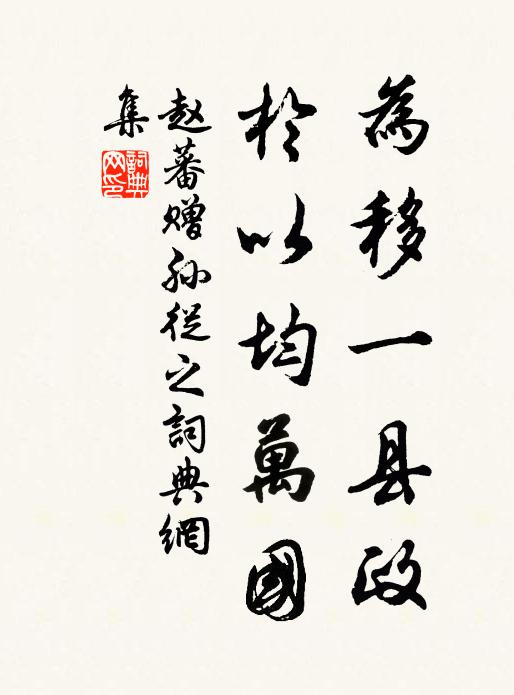 為移一县政
於以均萬國
赵蕃赠孙從之詞典網
集
詞典
网印